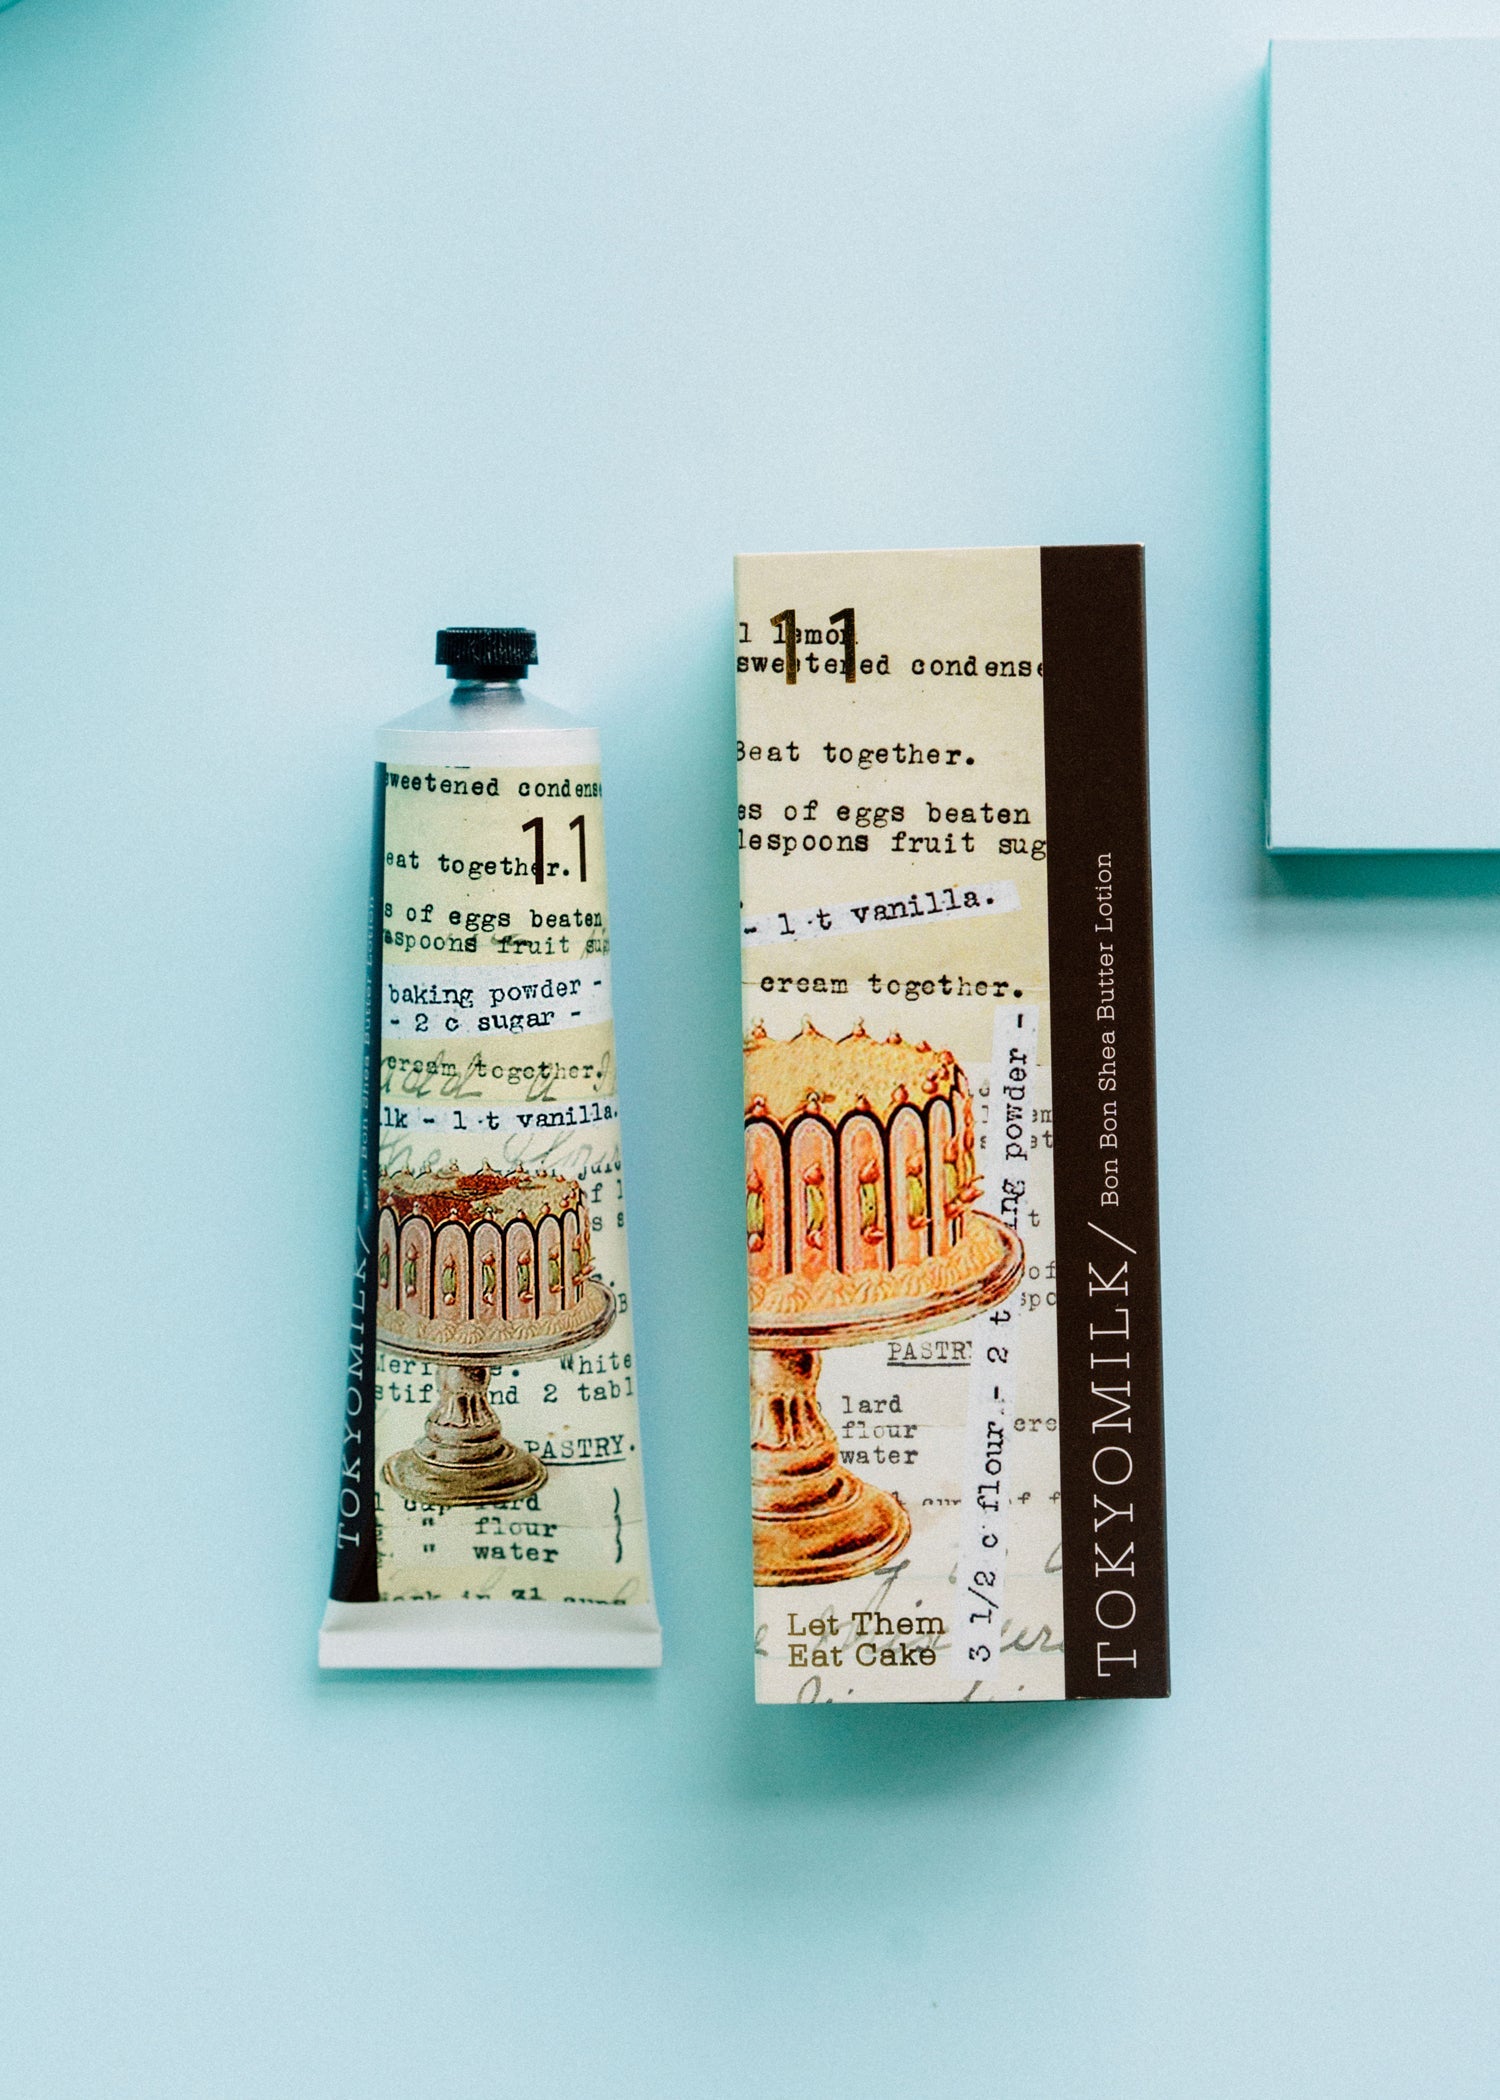 sweetened condens
11
eat together.
s of eggs beaten
spoons fruit sug
baking powder -
- 2 c sugar -
cream together.
lk - 1 t vanilla.
White
stif nd 2 tabl
PASTRY.
1 cup lard )
" flour )
" water )
TOKYOMILK / Bon Bon Shea Butter Lotion
11
1 lemon
sweetened condense
Beat together.
es of eggs beaten
lespoons fruit sug
- 1 t vanilla.
cream together.
PASTR
lard
flour
water
3 1/2 c flour - 2 t ing powder -
Let Them
Eat Cake
TOKYOMILK / Bon Bon Shea Butter Lotion